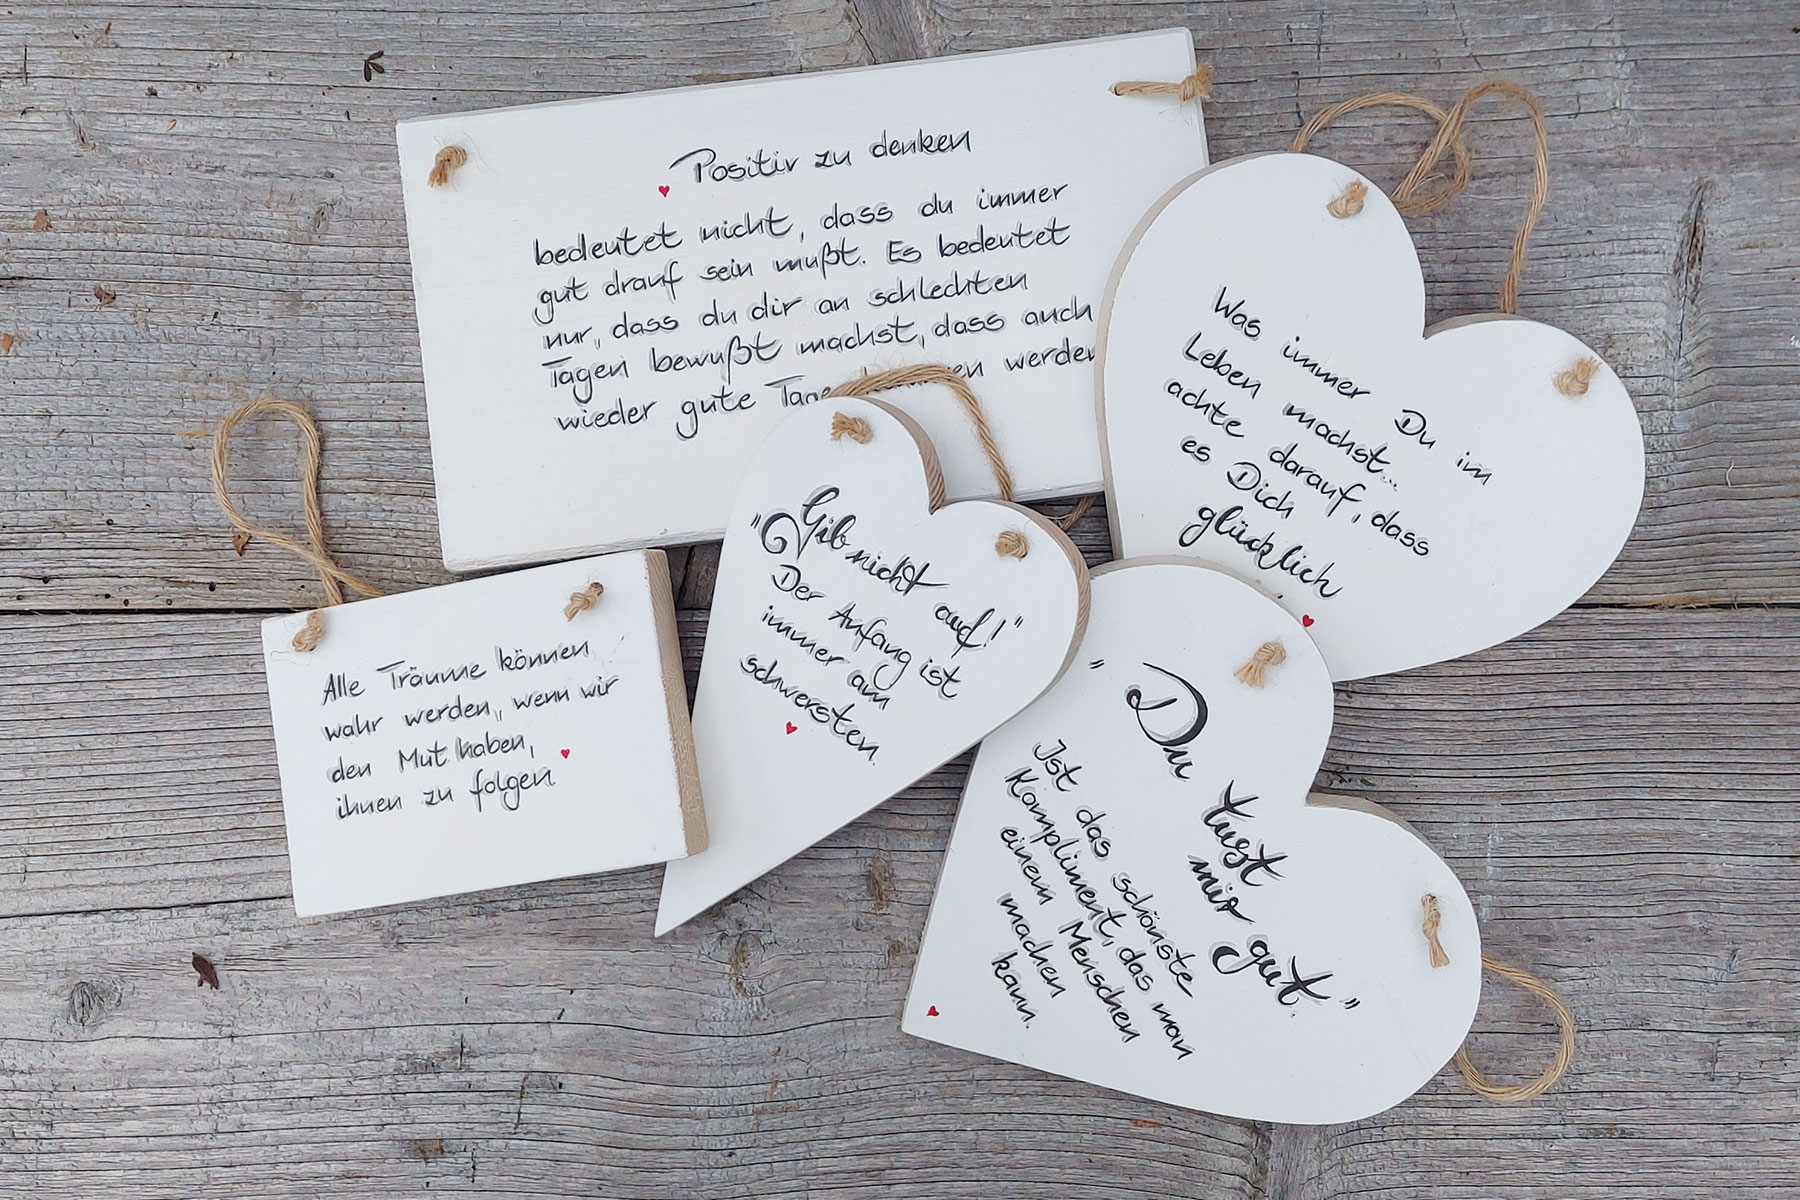 Positiv zu denken
bedeutet nicht, dass du immer
gut drauf sein mußt. Es bedeutet
nur, dass du dir an schlechten
Tagen bewußt machst, dass auch
wieder gute Tage werden
Was immer Du im
Leben machst...
achte darauf, dass
es Dich
glücklich
"Gib nicht auf!"
Der Anfang ist
immer am
schwersten.
Alle Träume können
wahr werden, wenn wir
den Mut haben,
ihnen zu folgen
"Du tust
mir
gut."
Ist das schönste
Kompliment, das man
einem Menschen
machen
kann.